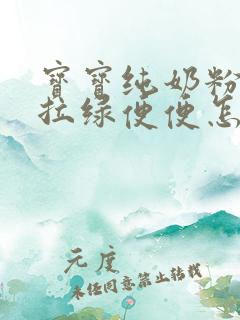 宝宝纯奶粉
拉绿便便怎
元度
未经同意禁止转载